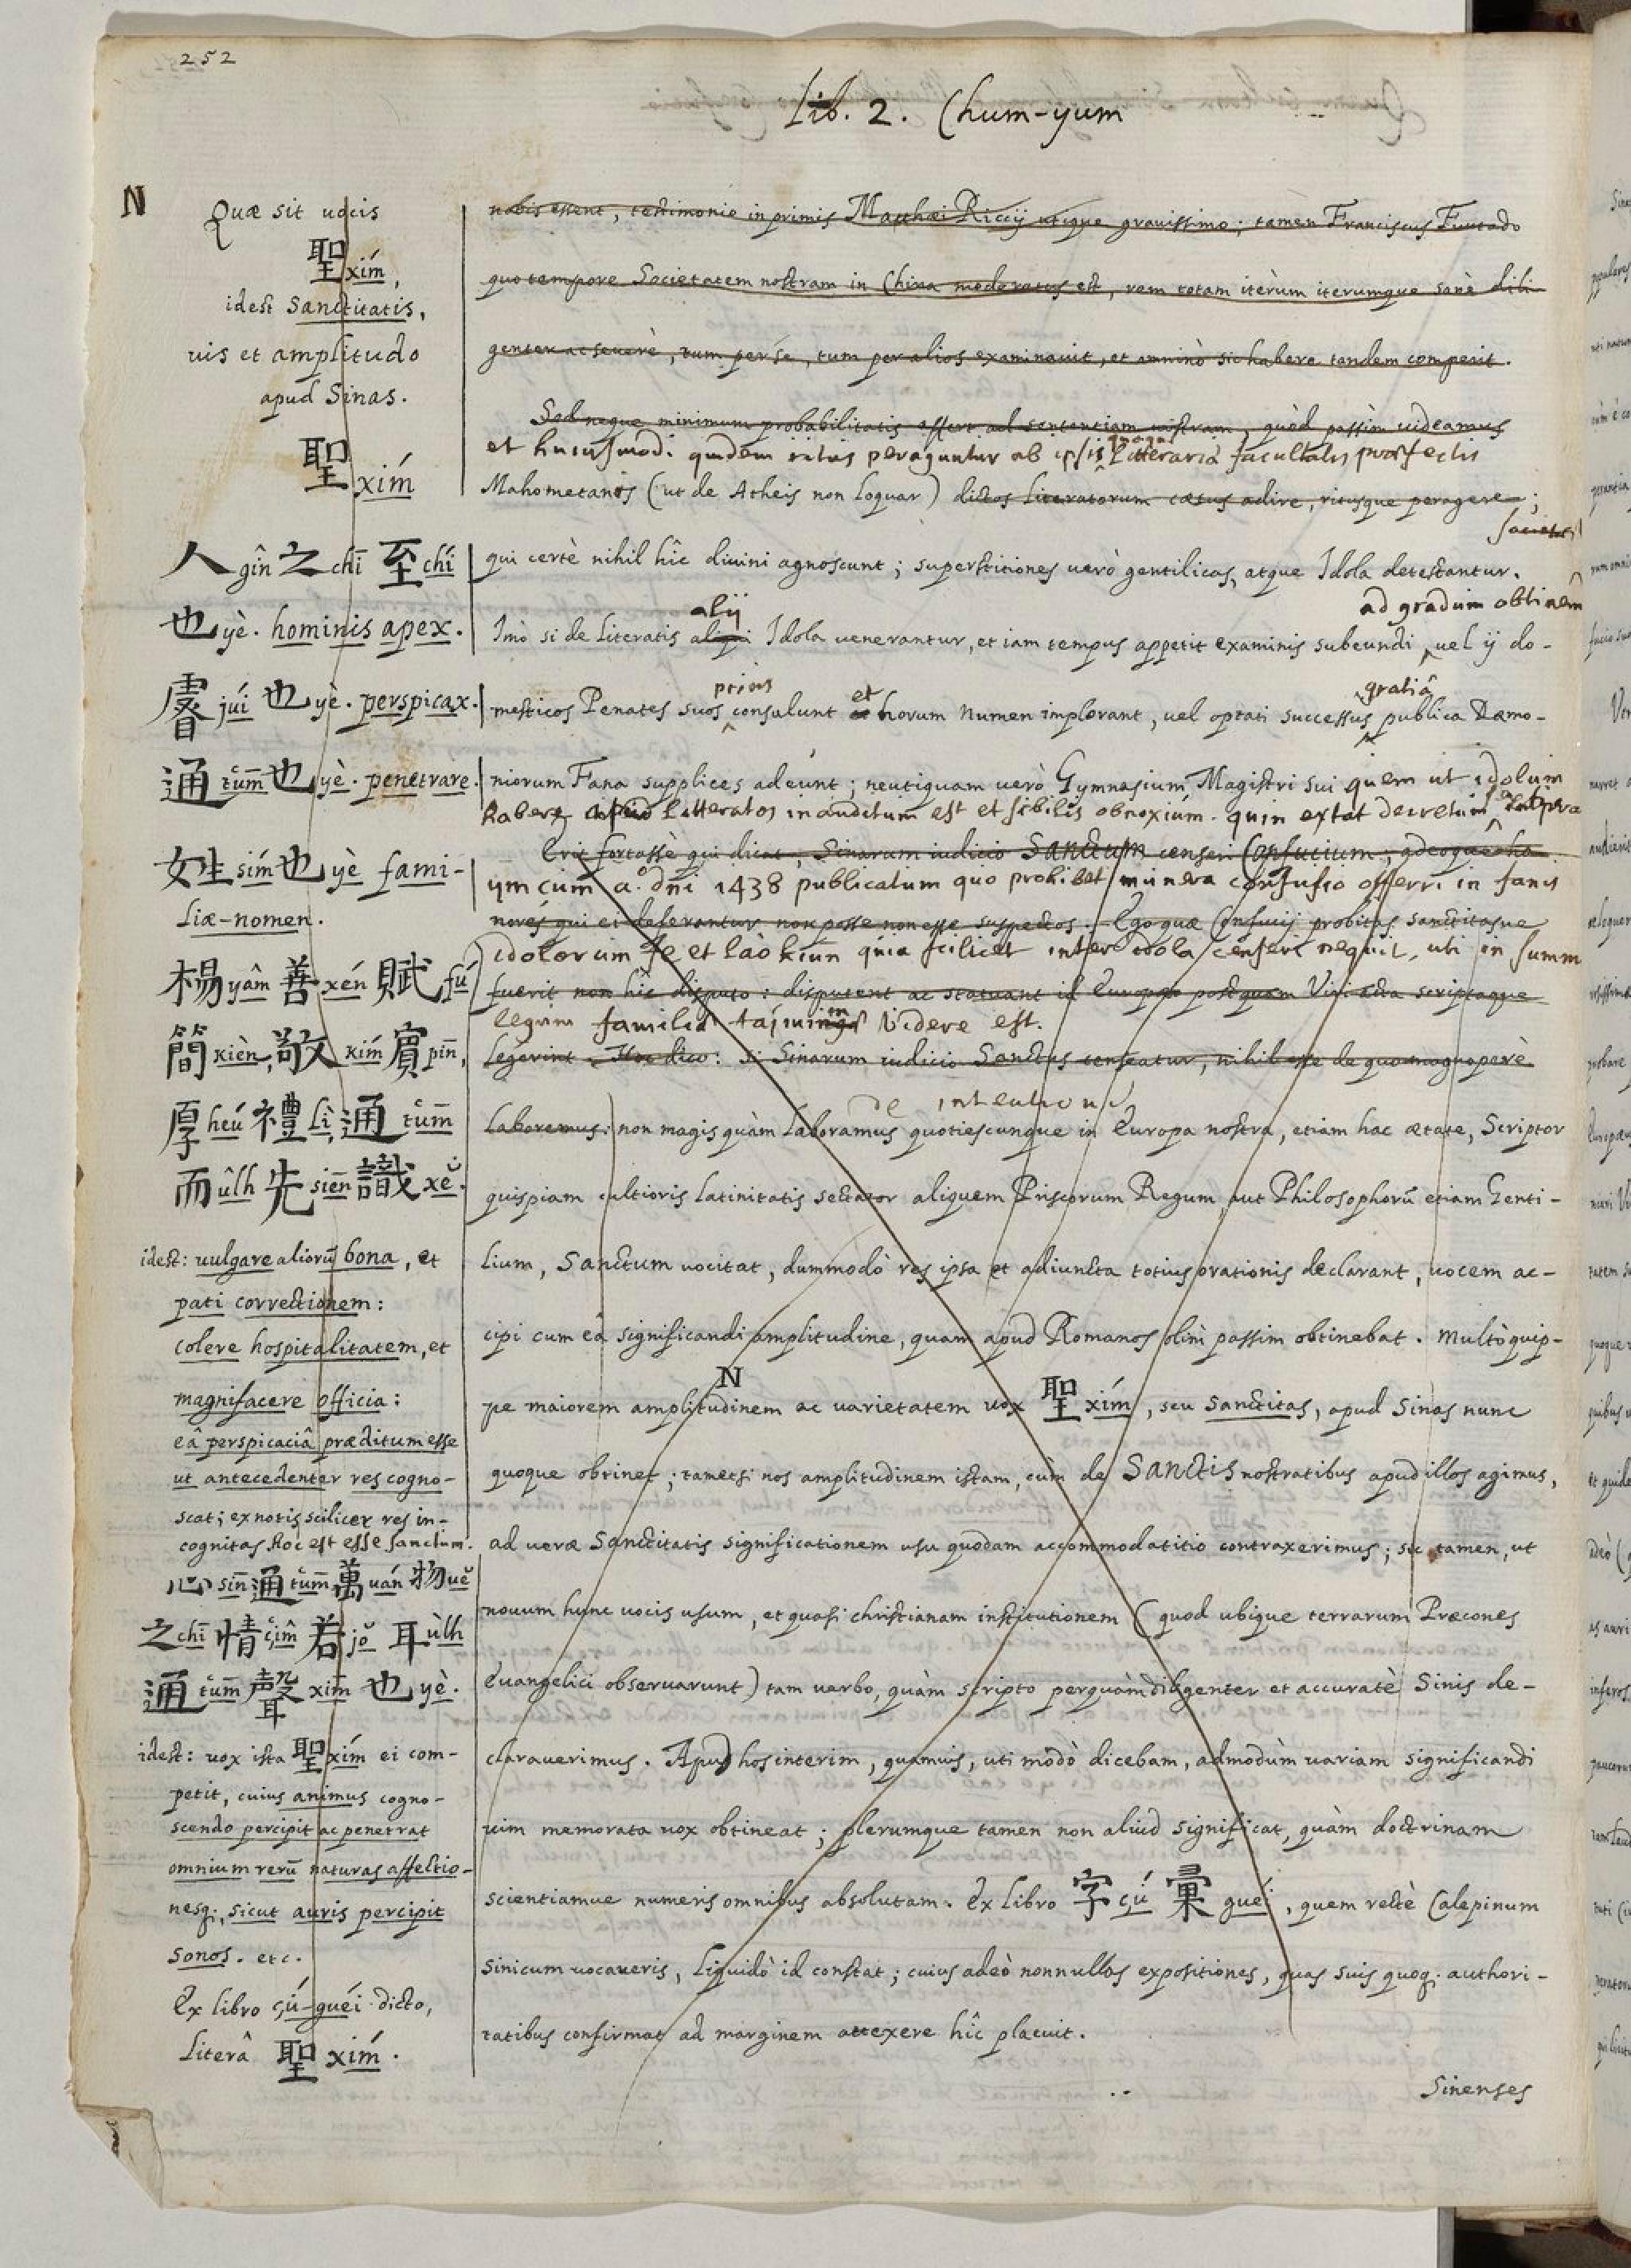 252
Lib. 2. Chum-yum
N
Quæ sit uocis
聖 xím,
idest Sanctitatis,
uis et amplitudo
apud Sinas.
聖 xím
人 gîn 之 chī 至 chí
也 yè. hominis apex.
睿 juí 也 yè. perspicax.
通 tūm 也 yè. penetrare.
姓 sím 也 yè fami-
liæ-nomen.
楊 yâm 善 xén 賦 fú
簡 kièn, 敬 kím 賓 pīn,
厚 heú 禮 lì, 通 tūm
而 ûlh 先 siēn 識 xĕ.
idest: uulgare aliorū bona, et
pati correctionem:
colere hospitalitatem, et
magnifacere officia:
eâ perspicaciâ præditum esse
ut antecedenter res cogno-
scat; ex notis scilicet res in-
cognitas. hoc est esse sanctum.
心 sīn 通 tūm 萬 uán 物 uĕ
之 chī 情 çîm 若 jŏ 耳 ùlh
通 tūm 聲 xīm 也 yè.
idest: uox ista 聖 xím ei com-
petit, cuius animus cogno-
scendo percipit ac penetrat
omnium rerū naturas affectio-
nesq;, sicut auris percipit
sonos. etc.
Ex libro çú-guéi dicto,
literâ 聖 xím.
nobis essent, testimonio in primis Matthæi Riccij utique grauissimo; tamen Franciscus Furtado
quo tempore Societatem nostram in China moderatus est, rem totam iterùm iterumque sanè dili-
genter ac seuerè, tum per se, tum per alios examinauit, et omninò sic habere tandem comperit.
Sed neque minimum probabilitatis affert ad sententiam nostram, quòd passìm uideamus
et huiusmodi quidem ritus peraguntur ab ipsis quoque Litterariâ facultatis præfectis
Mahometanis (ut de Atheis non loquar) dictos literatorum cœtus adire, ritusque peragere;
qui certè nihil hîc diuini agnoscunt; superstitiones uerò gentilicas, atque Idola detestantur.
alij ad gradum obtinen
Imò si de literatis aliqui Idola uenerantur, et iam tempus appetit examinis subeundi, uel ij do-
prius et gratiâ
mesticos Penates suos consulunt ac horum numen implorant, uel optati successus publica Dæmo-
niorum Fana supplices adeunt; neutiquam uerò Gymnasium Magistri sui quem ut idolum
habere litteratos inauditum est et sibilis obnoxium. quin extat decretum
Erit fortassè qui dicat, Sinarum iudicio Sanctum censeri Confucium; adeoque ho-
ym cùm aº. dni 1438 publicatum quo prohibet munera confusio offerri in fanis
nores qui ei deferantur non posse non esse suspectos. Ego quæ Confucij probitas sanctitasue
idolorum fe et lào kiun quia scilicet inter idola censeri nequit, uti in summ
fuerit non hîc disputo: disputent ac statuant id Europæi postquam Viri acta scriptaque
legum familiæ taimin videre est.
legerint. Hoc dico: si Sinarum iudicio Sanctus censeatur, nihil esse de quo magnoperè
de intentione
laboremus: non magis quàm laboramus quotiescunque in Europa nostra, etiam hac ætate, Scriptor
quispiam cultioris latinitatis sectator aliquem Priscorum Regum, aut Philosophorū etiam Genti-
lium, Sanctum uocitat, dummodò res ipsa et adiuncta totius orationis declarant, uocem ac-
cipi cum eâ significandi amplitudine, quam apud Romanos olìm passim obtinebat. Multò quip-
N
pe maiorem amplitudinem ac uarietatem uox 聖 xím, seu Sanctitas, apud Sinas nunc
quoque obtinet; tametsi nos amplitudinem istam, cùm de Sanctis nostratibus apud illos agimus,
ad ueræ Sanctitatis significationem usu quodam accommodatitio contraxerimus; sic tamen, ut
nouum hunc uocis usum, et quasi christianam institutionem (quod ubique terrarum Præcones
Euangelici obseruarunt) tam uerbo, quàm scripto perquàm diligenter et accuratè Sinis de-
clarauerimus. Apud hos interim, quamuis, uti modò dicebam, admodùm uariam significandi
uim memorata uox obtineat; plerumque tamen non aliud significat, quàm doctrinam
scientiamue numeris omnibus absolutam. Ex libro 字 çú 彙 guéi, quem rectè Calepinum
Sinicum uocaueris, liquidò id constat; cuius adeò nonnullas expositiones, quas suis quoq; authori-
tatibus confirmat ad marginem attexere hîc placuit.
Sinenses